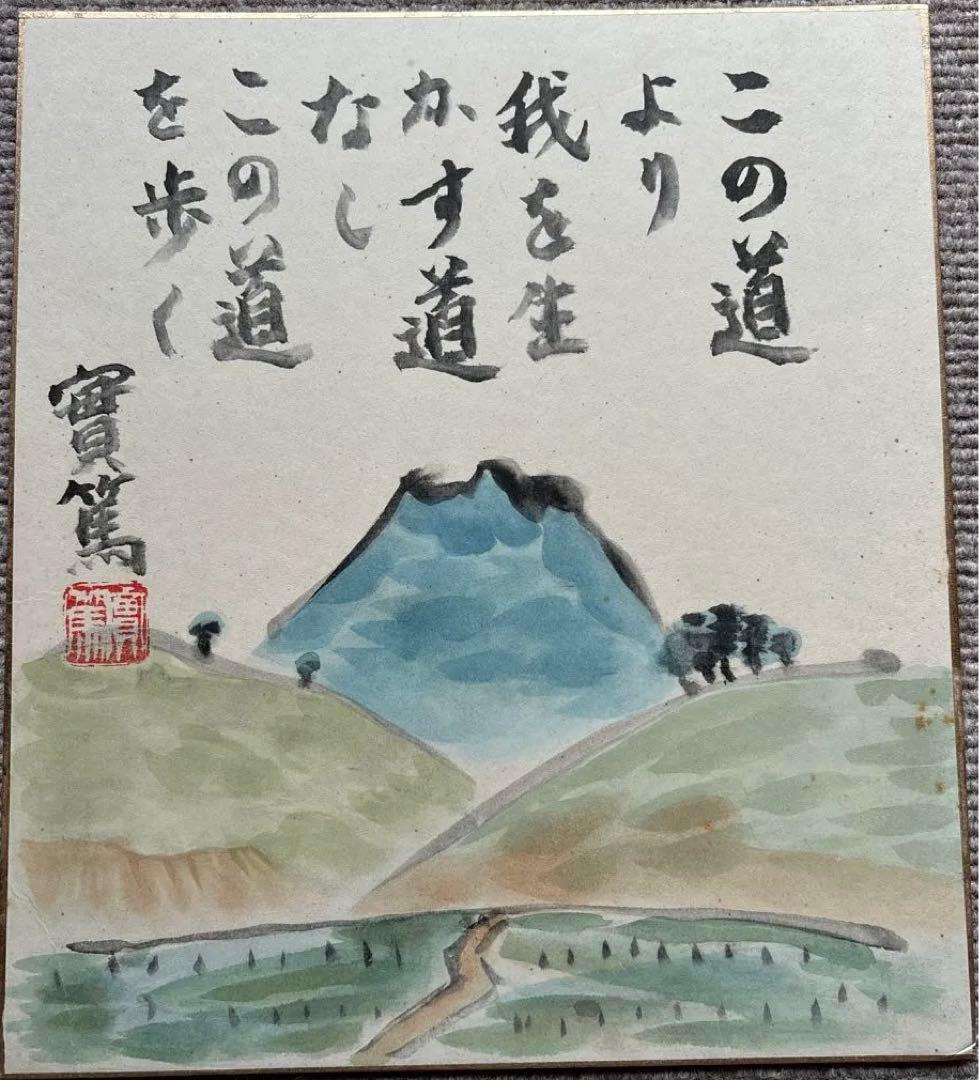 この道
より
我を生
かす道
なし
この道
を歩く
實篤
實篤